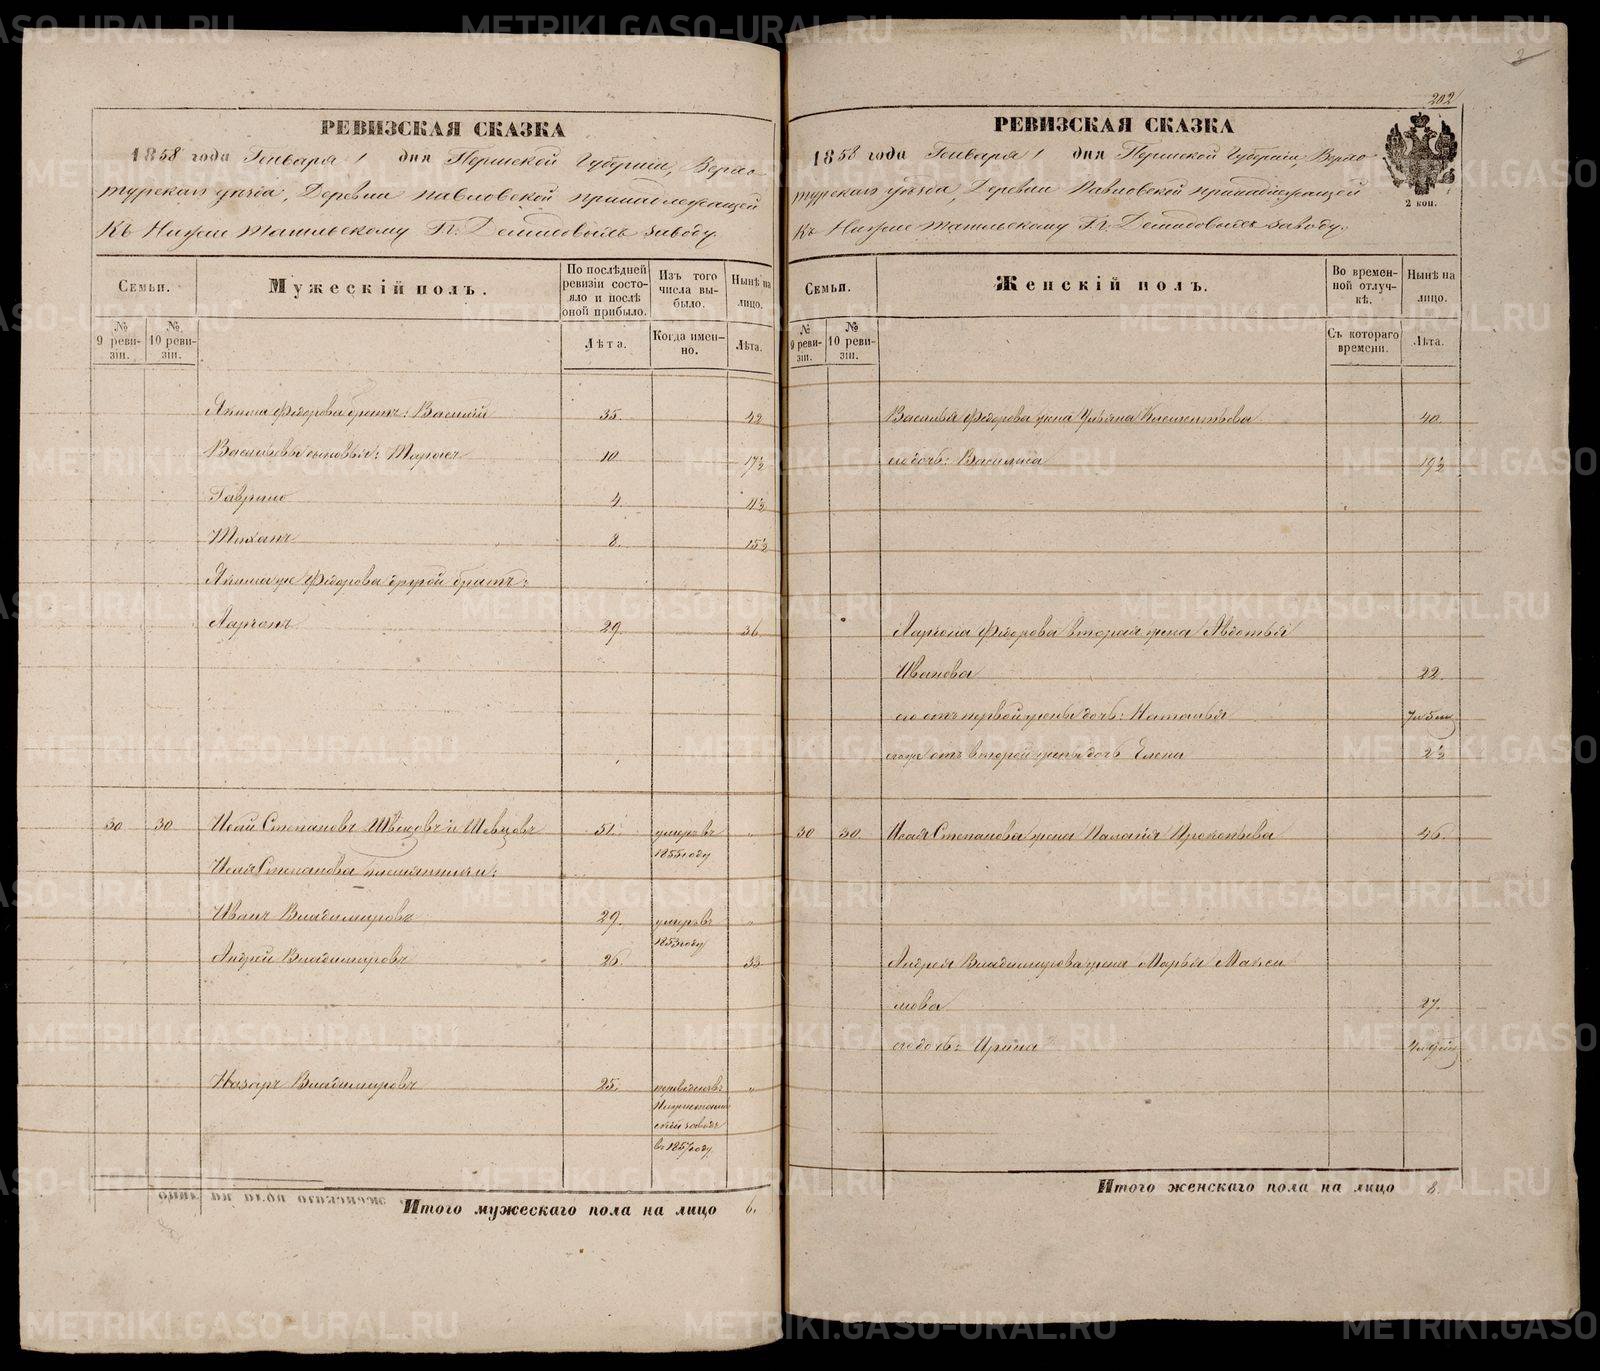 РЕВИЗСКАЯ СКАЗКА
1858 года Генваря 1 дня Пермской Губернии, Верхо-
турскаго уѣзда, Деревни Павловской принадлежащей
Къ Нижне Тагильскому Гг. Демидовыхъ заводу.
Семьи.
Мужескій полъ.
По послѣдней ревизіи состояло и послѣ оной прибыло.
Изъ того числа выбыло.
Нынѣ на лицо.
№ 9 ревизіи.
№ 10 ревизіи.
Лѣта.
Когда именно.
Лѣта.
Федорова братъ: Василій 35. 42
Васильевы сыновья: Тарасъ 10. 17½
Гаврило 4. 11½
8. 15½
Федорова другой братъ:
Ларіонъ 29. 36.
30 30 Исай Степановъ Швецовъ 51. умеръ въ 1855 году "
Исая Степанова племянники:
Иванъ Владимировъ 29. умеръ въ 1853 году "
Андрей Владимировъ 26. 33
Назаръ Владимировъ 25. переведенъ въ Нижнетагильскій заводъ въ 1857 году "
Итого мужескаго пола на лицо 6.
2
202
РЕВИЗСКАЯ СКАЗКА
1858 года Генваря 1 дня Пермской Губерніи, Верхо-
турскаго уѣзда, Деревни Павловской принадлежащей
Къ Нижне Тагильскому Гг. Демидовыхъ заводу.
2 коп.
Семьи.
Женскій полъ.
Во временной отлучкѣ.
Нынѣ на лицо.
№ 9 ревизіи.
№ 10 ревизіи.
Съ котораго времени.
Лѣта.
Василья Федорова жена Ульяна Климентьева 40.
его дочь: Василиса 19½
Ларіона Федорова вторая жена Авдотья
Иванова 22.
его отъ первой жены дочь: Наталья
его же отъ второй жены дочь Елена 2½
30 30. Исая Степанова жена Палагѣя Прокопьева 46.
Андрея Владимирова жена Марья Макси
мова 27.
его дочь: Ирина
Итого женскаго пола на лицо 8.
METRIKI.GASO-URAL.RU